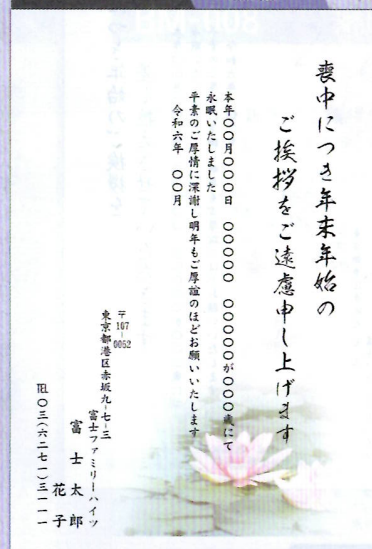 喪中につき年末年始の
ご挨拶をご遠慮申し上げます
本年〇〇月〇〇〇日　〇〇〇〇〇　〇〇〇〇〇が〇〇〇歳にて
永眠いたしました
平素のご厚情に深謝し明年もご厚誼のほどお願いいたします
令和六年　〇〇月
〒107-0052
東京都港区赤坂九-七-三
富士ファミリーハイツ
富士太郎
花子
℡〇三(六二七一)三一一一